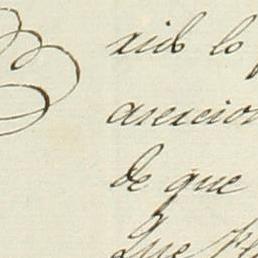 lo
asercion
de que
Que